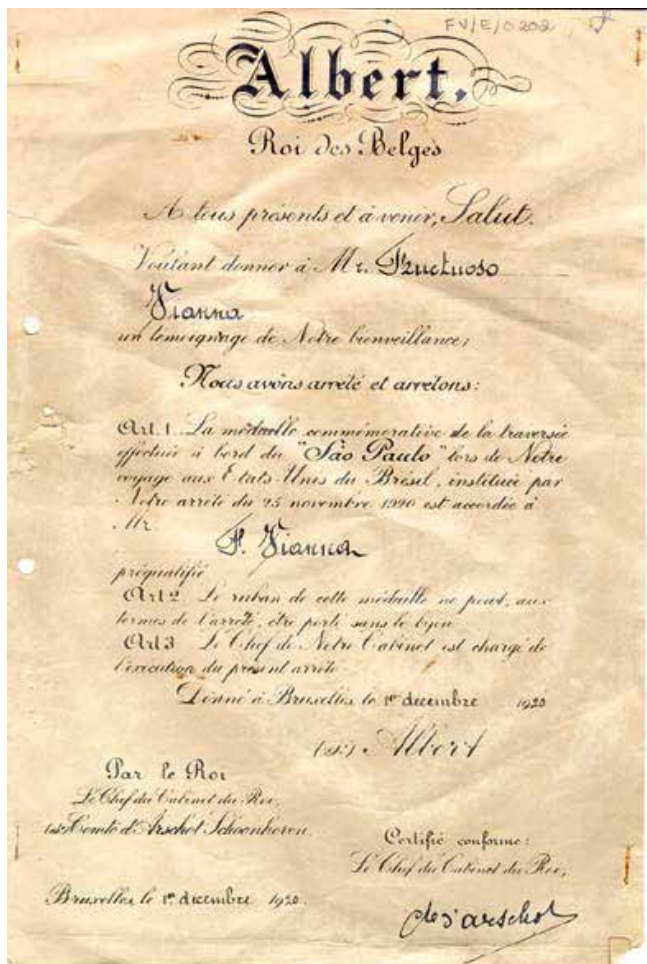 FV/E/0202
Albert.
Roi des Belges
A tous présents et à venir, Salut.
Voulant donner à Mr. Fructuoso
Vianna
un témoignage de Notre bienveillance;
Nous avons arrêté et arrêtons:
Art. 1. La médaille commémorative de la traversée
effectuée à bord du "São Paulo" lors de Notre
voyage aux Etats-Unis du Brésil, instituée par
Notre arrêté du 25 novembre 1920 est accordée à
Mr.
F. Vianna
préqualifié
Art 2. Le ruban de cette médaille ne peut, aux
termes de l'arrêté, être porté sans le bijou
Art 3. Le Chef de Notre Cabinet est chargé de
l'exécution du présent arrêté
Donné à Bruxelles le 1er decembre 1920
(sé) Albert
Par le Roi
Le Chef du Cabinet du Roi,
(sé) Comte d'Arschot Schoonhoven.
Certifié conforme:
Le Chef du Cabinet du Roi,
Bruxelles, le 1er decembre 1920.
d'arschot